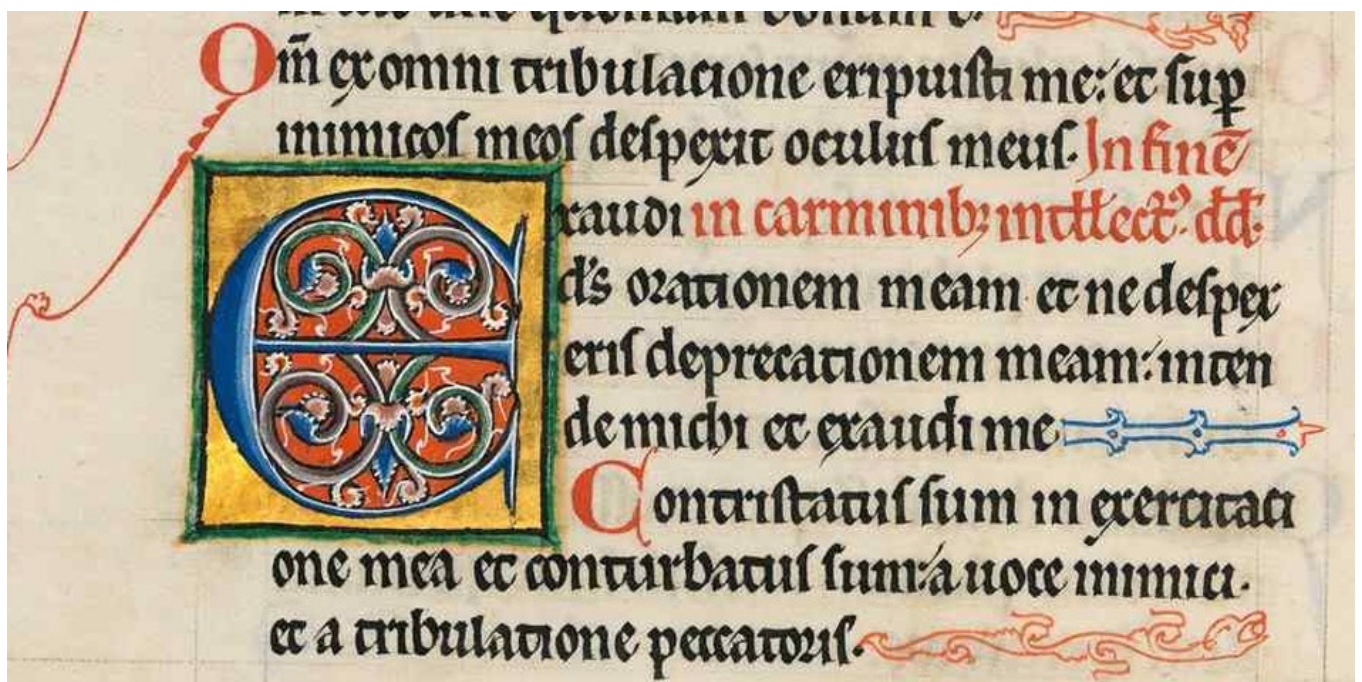 in tuo quoniam bonum ē.
Om̄ ex omni tribulacione eripuisti me: et sup̲
inimicos meos despexit oculus meus. In finē
Exaudi in carminibꝫ intll̄ectꝰ. dd̄.
d̄s orationem meam et ne despex
eris deprecationem meam: inten
de michi et exaudi me
Contristatus sum in exercitaci
one mea et conturbatus sum: a uoce inimici.
et a tribulatione peccatoris.